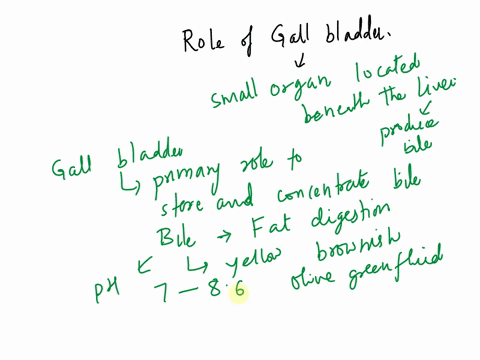 Role of Gall bladder.
small organ located
beneath the liver
produce
bile
Gall bladder
primary role to
store and concentrate bile
Bile → Fat digestion
yellow brownish
PH 7 – 8.6 olive green fluid